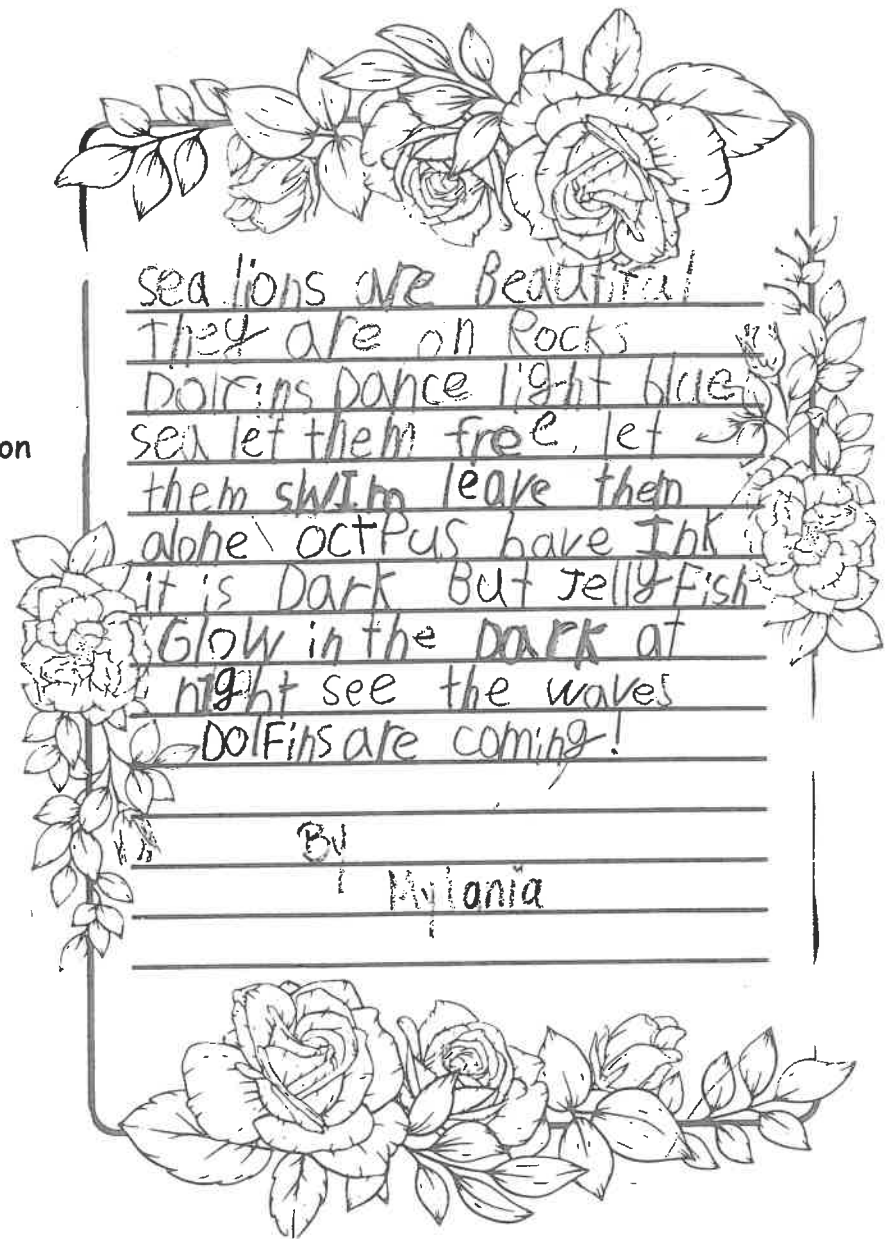 sea lions are Beautiful
they are on Rocks
Dolfins Dance light blue
sea let them free. let
on
them swIm leave them
alone octPus have Ink
it is Dark But JellyFish
Glow in the Dark at
night see the waves
DolFins are coming!
By
Mylania